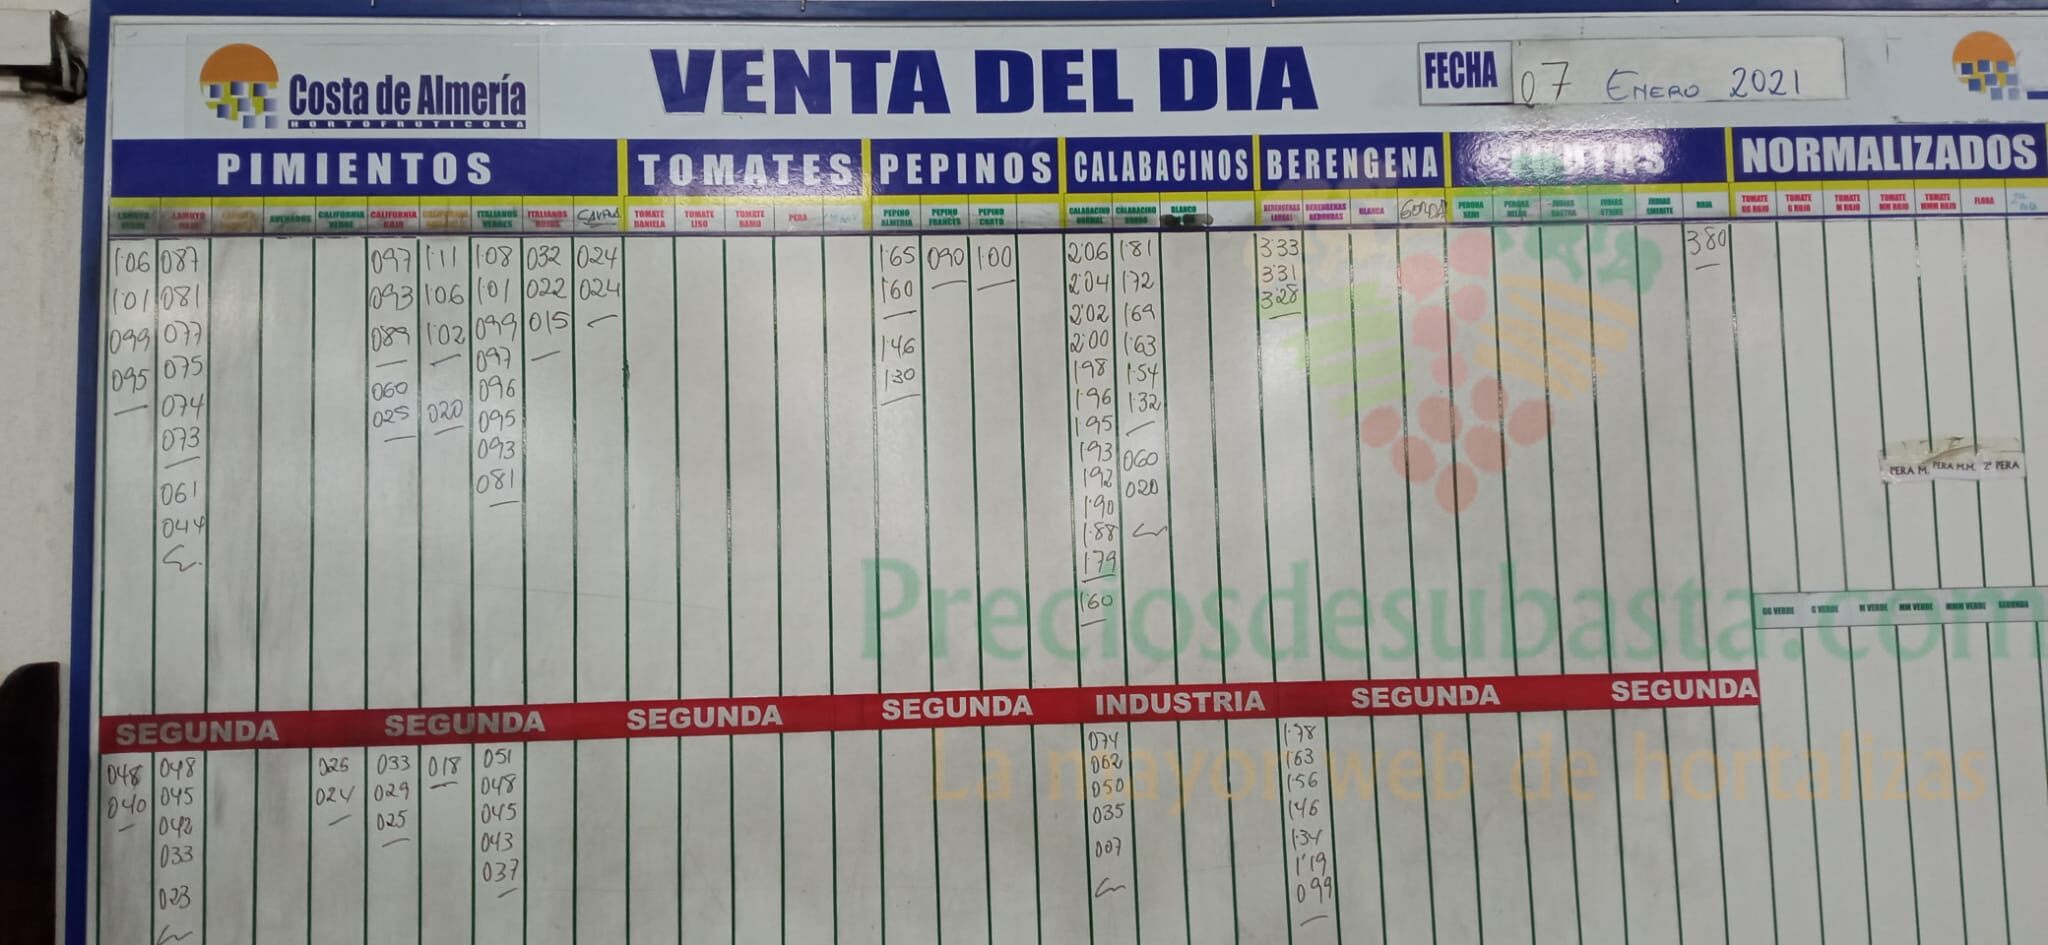 Costa de Almería
HORTOFRUTICOLA
VENTA DEL DIA
FECHA 07 ENERO 2021
PIMIENTOS TOMATES PEPINOS CALABACINOS BERENGENA NORMALIZADOS
AVENADOS CALIFORNIA VERDE CALIFORNIA ROJO ITALIANOS VERDES ITALIANOS ROJOS TOMATE DANIELA TOMATE LISO TOMATE RAMO PERA PEPINO ALMERIA PEPINO FRANCES PEPINO CORTO CALABACINO CALABACINO GORDO BLANCO BERENGENAS LARGAS BERENGENAS REDONDAS BLANCA GORDA PERONA SEMI PERONA JUDIAS JUDIAS JUDIAS EMERITE ROJA TOMATE GG ROJO TOMATE G ROJO TOMATE M ROJO TOMATE MM ROJO TOMATE MMM ROJO FLORA
1'06 087 097 1'11 1'08 032 024 1'65 090 1'00 2'06 1'81 3'33 3'80
1'01 081 093 1'06 1'01 022 024 1'60 2'04 1'72 3'31
099 077 089 1'02 099 015 1'46 2'02 1'69 3'28
095 075 060 020 097 1'30 2'00 1'63
074 025 096 1'98 1'54
073 095 1'96 1'32
061 093 1'95 060
044 081 1'93 020
1'92
1'90
1'88
1'79
1'60
PERA M. PERA M.M. 2ª PERA
GG VERDE G VERDE M VERDE MM VERDE MMM VERDE SEGUNDA
Preciosdesubasta.com
La mayor web de hortalizas
SEGUNDA SEGUNDA SEGUNDA SEGUNDA INDUSTRIA SEGUNDA SEGUNDA
048 048 026 033 018 051 074 1'78
040 045 024 029 048 062 1'63
042 025 045 050 1'56
033 043 035 1'46
023 037 007 1'34
1'19
099